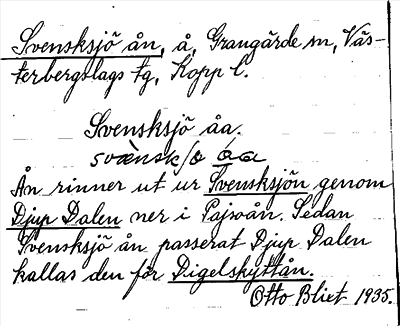 Svensksjö ån, å, Grangärde sn, Väs-
terbergslags tg, Kopp l.
Svensksjö åa.
Ån rinner ut ur Svensksjön genom
Djup Dalen ner i Pajsoån. Sedan
Svensksjö ån passerat Djup Dalen
kallas den för Digelshyttån.
Otto Blixt 1935.